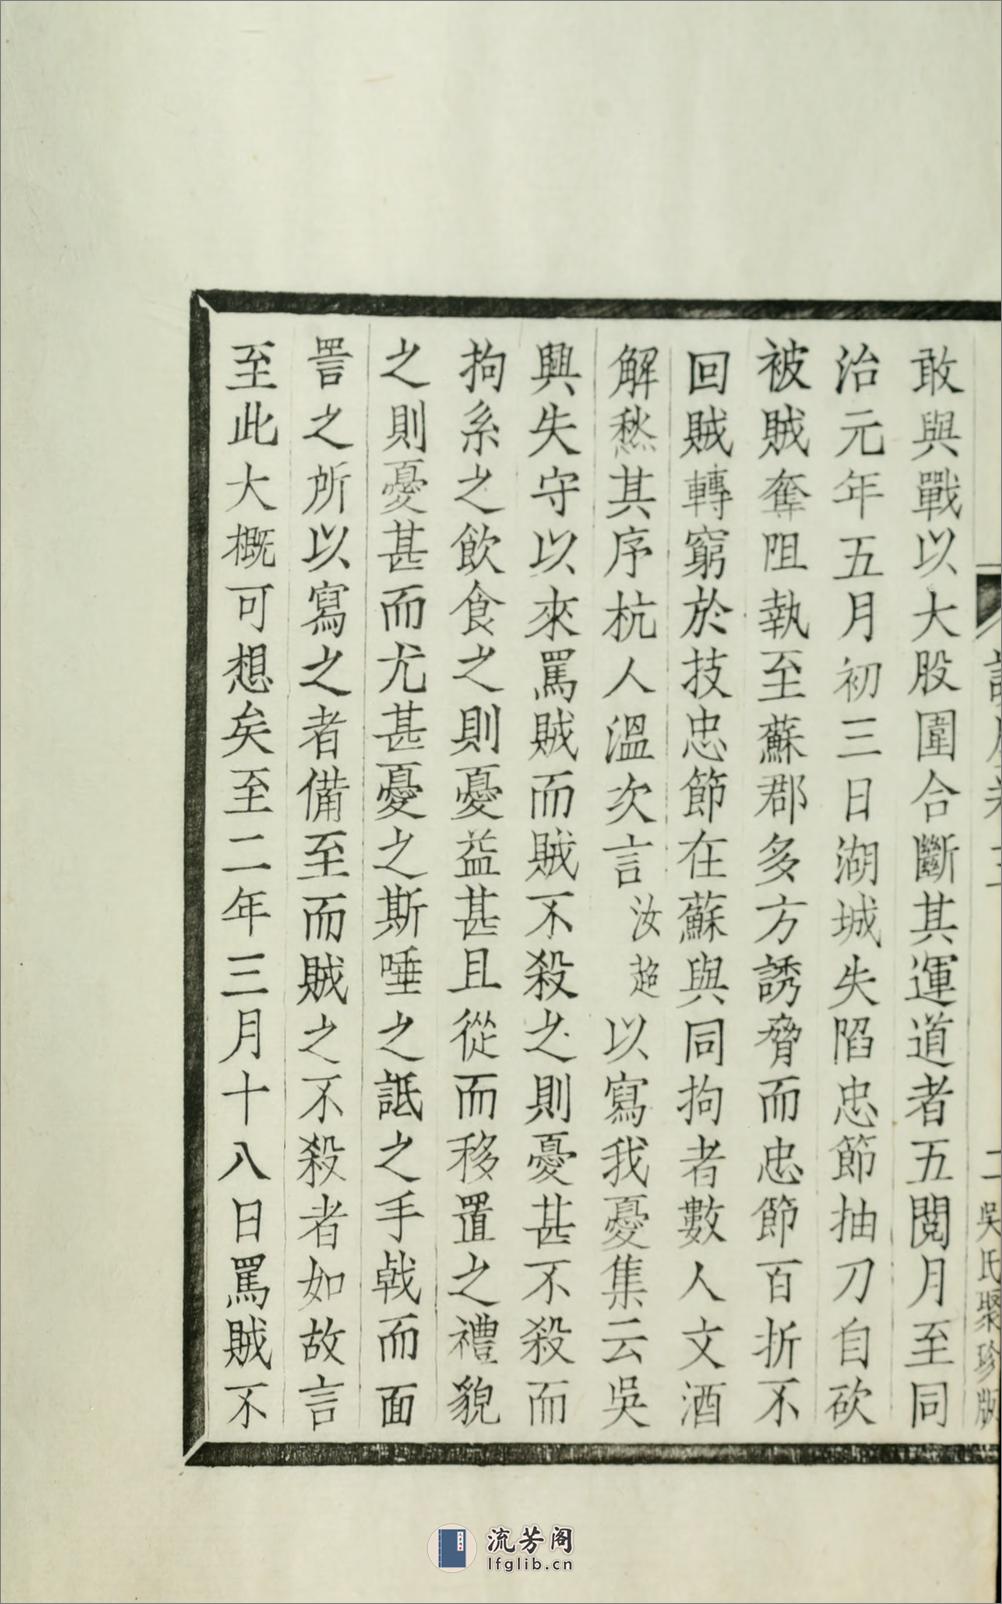 敢與戰以大股圍合斷其運道者五閱月至同
治元年五月初三日湖城失陷忠節抽刀自砍
被賊奪阻執至蘇郡多方誘脅而忠節百折不
回賊轉窮於技忠節在蘇與同拘者數人文酒
解愁其序杭人溫次言汝超以寫我憂集云吳
興失守以來罵賊而賊不殺之則憂甚不殺而
拘系之飲食之則憂益甚且從而移置之禮貌
之則憂甚而尤甚憂之斯唾之詆之手戟而面
詈之所以寫之者備至而賊之不殺者如故言
至此大概可想矣至二年三月十八日罵賊不
二 吳氏聚珍版
流芳阁
lfglib.cn